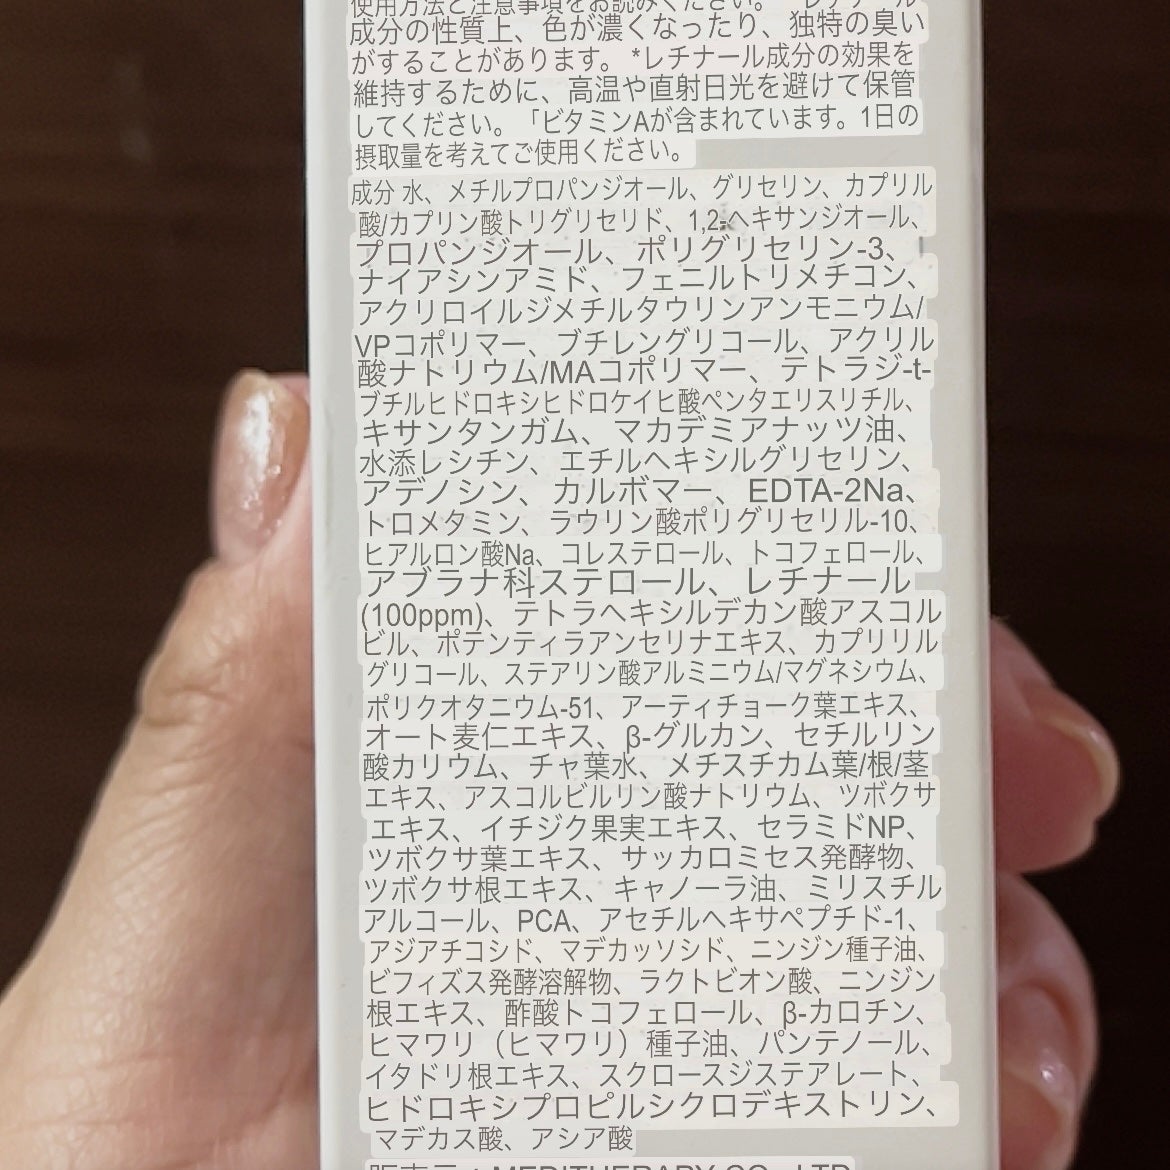 使用方法と注意事項をお読みください。 *レチナール
成分の性質上、色が濃くなったり、独特の臭い
がすることがあります。 *レチナール成分の効果を
維持するために、高温や直射日光を避けて保管
してください。「ビタミンAが含まれています。1日の
摂取量を考えてご使用ください。
成分 水、メチルプロパンジオール、グリセリン、カプリル
酸/カプリン酸トリグリセリド、1,2-ヘキサンジオール、
プロパンジオール、ポリグリセリン-3、
ナイアシンアミド、フェニルトリメチコン、
アクリロイルジメチルタウリンアンモニウム/
VPコポリマー、ブチレングリコール、アクリル
酸ナトリウム/MAコポリマー、テトラジ-t-
ブチルヒドロキシヒドロケイヒ酸ペンタエリスリチル、
キサンタンガム、マカデミアナッツ油、
水添レシチン、エチルヘキシルグリセリン、
アデノシン、カルボマー、EDTA-2Na、
トロメタミン、ラウリン酸ポリグリセリル-10、
ヒアルロン酸Na、コレステロール、トコフェロール、
アブラナ科ステロール、レチナール
(100ppm)、テトラヘキシルデカン酸アスコル
ビル、ポテンティラアンセリナエキス、カプリリル
グリコール、ステアリン酸アルミニウム/マグネシウム、
ポリクオタニウム-51、アーティチョーク葉エキス、
オート麦仁エキス、β-グルカン、セチルリン
酸カリウム、チャ葉水、メチスチカム葉/根/茎
エキス、アスコルビルリン酸ナトリウム、ツボクサ
エキス、イチジク果実エキス、セラミドNP、
ツボクサ葉エキス、サッカロミセス発酵物、
ツボクサ根エキス、キャノーラ油、ミリスチル
アルコール、PCA、アセチルヘキサペプチド-1、
アジアチコシド、マデカッソシド、ニンジン種子油、
ビフィズス発酵溶解物、ラクトビオン酸、ニンジン
根エキス、酢酸トコフェロール、β-カロチン、
ヒマワリ（ヒマワリ）種子油、パンテノール、
イタドリ根エキス、スクロースジステアレート、
ヒドロキシプロピルシクロデキストリン、
マデカス酸、アシア酸
販売元：MEDITHERAPY CO., LTD